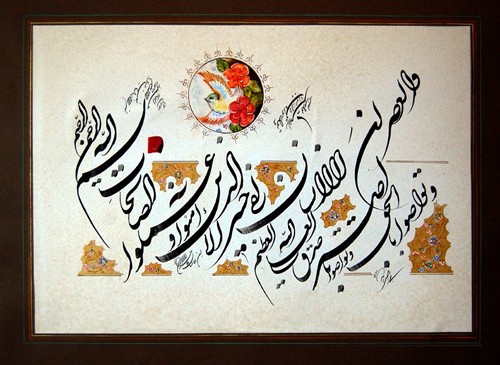 بسم الله الرحمن الرحيم
والعصر
ان الانسان لفی خسر
الا الذین امنوا و عملوا الصالحات
وتواصوا بالحق
وتواصوا بالصبر
صدق الله العلی العظیم